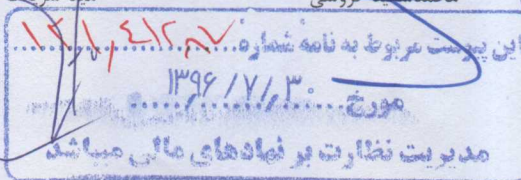 این پیوست مربوط به نامه شماره
مورخ ۱۳۹۶/۷/۳۰
مدیریت نظارت بر نهادهای مالی میباشد